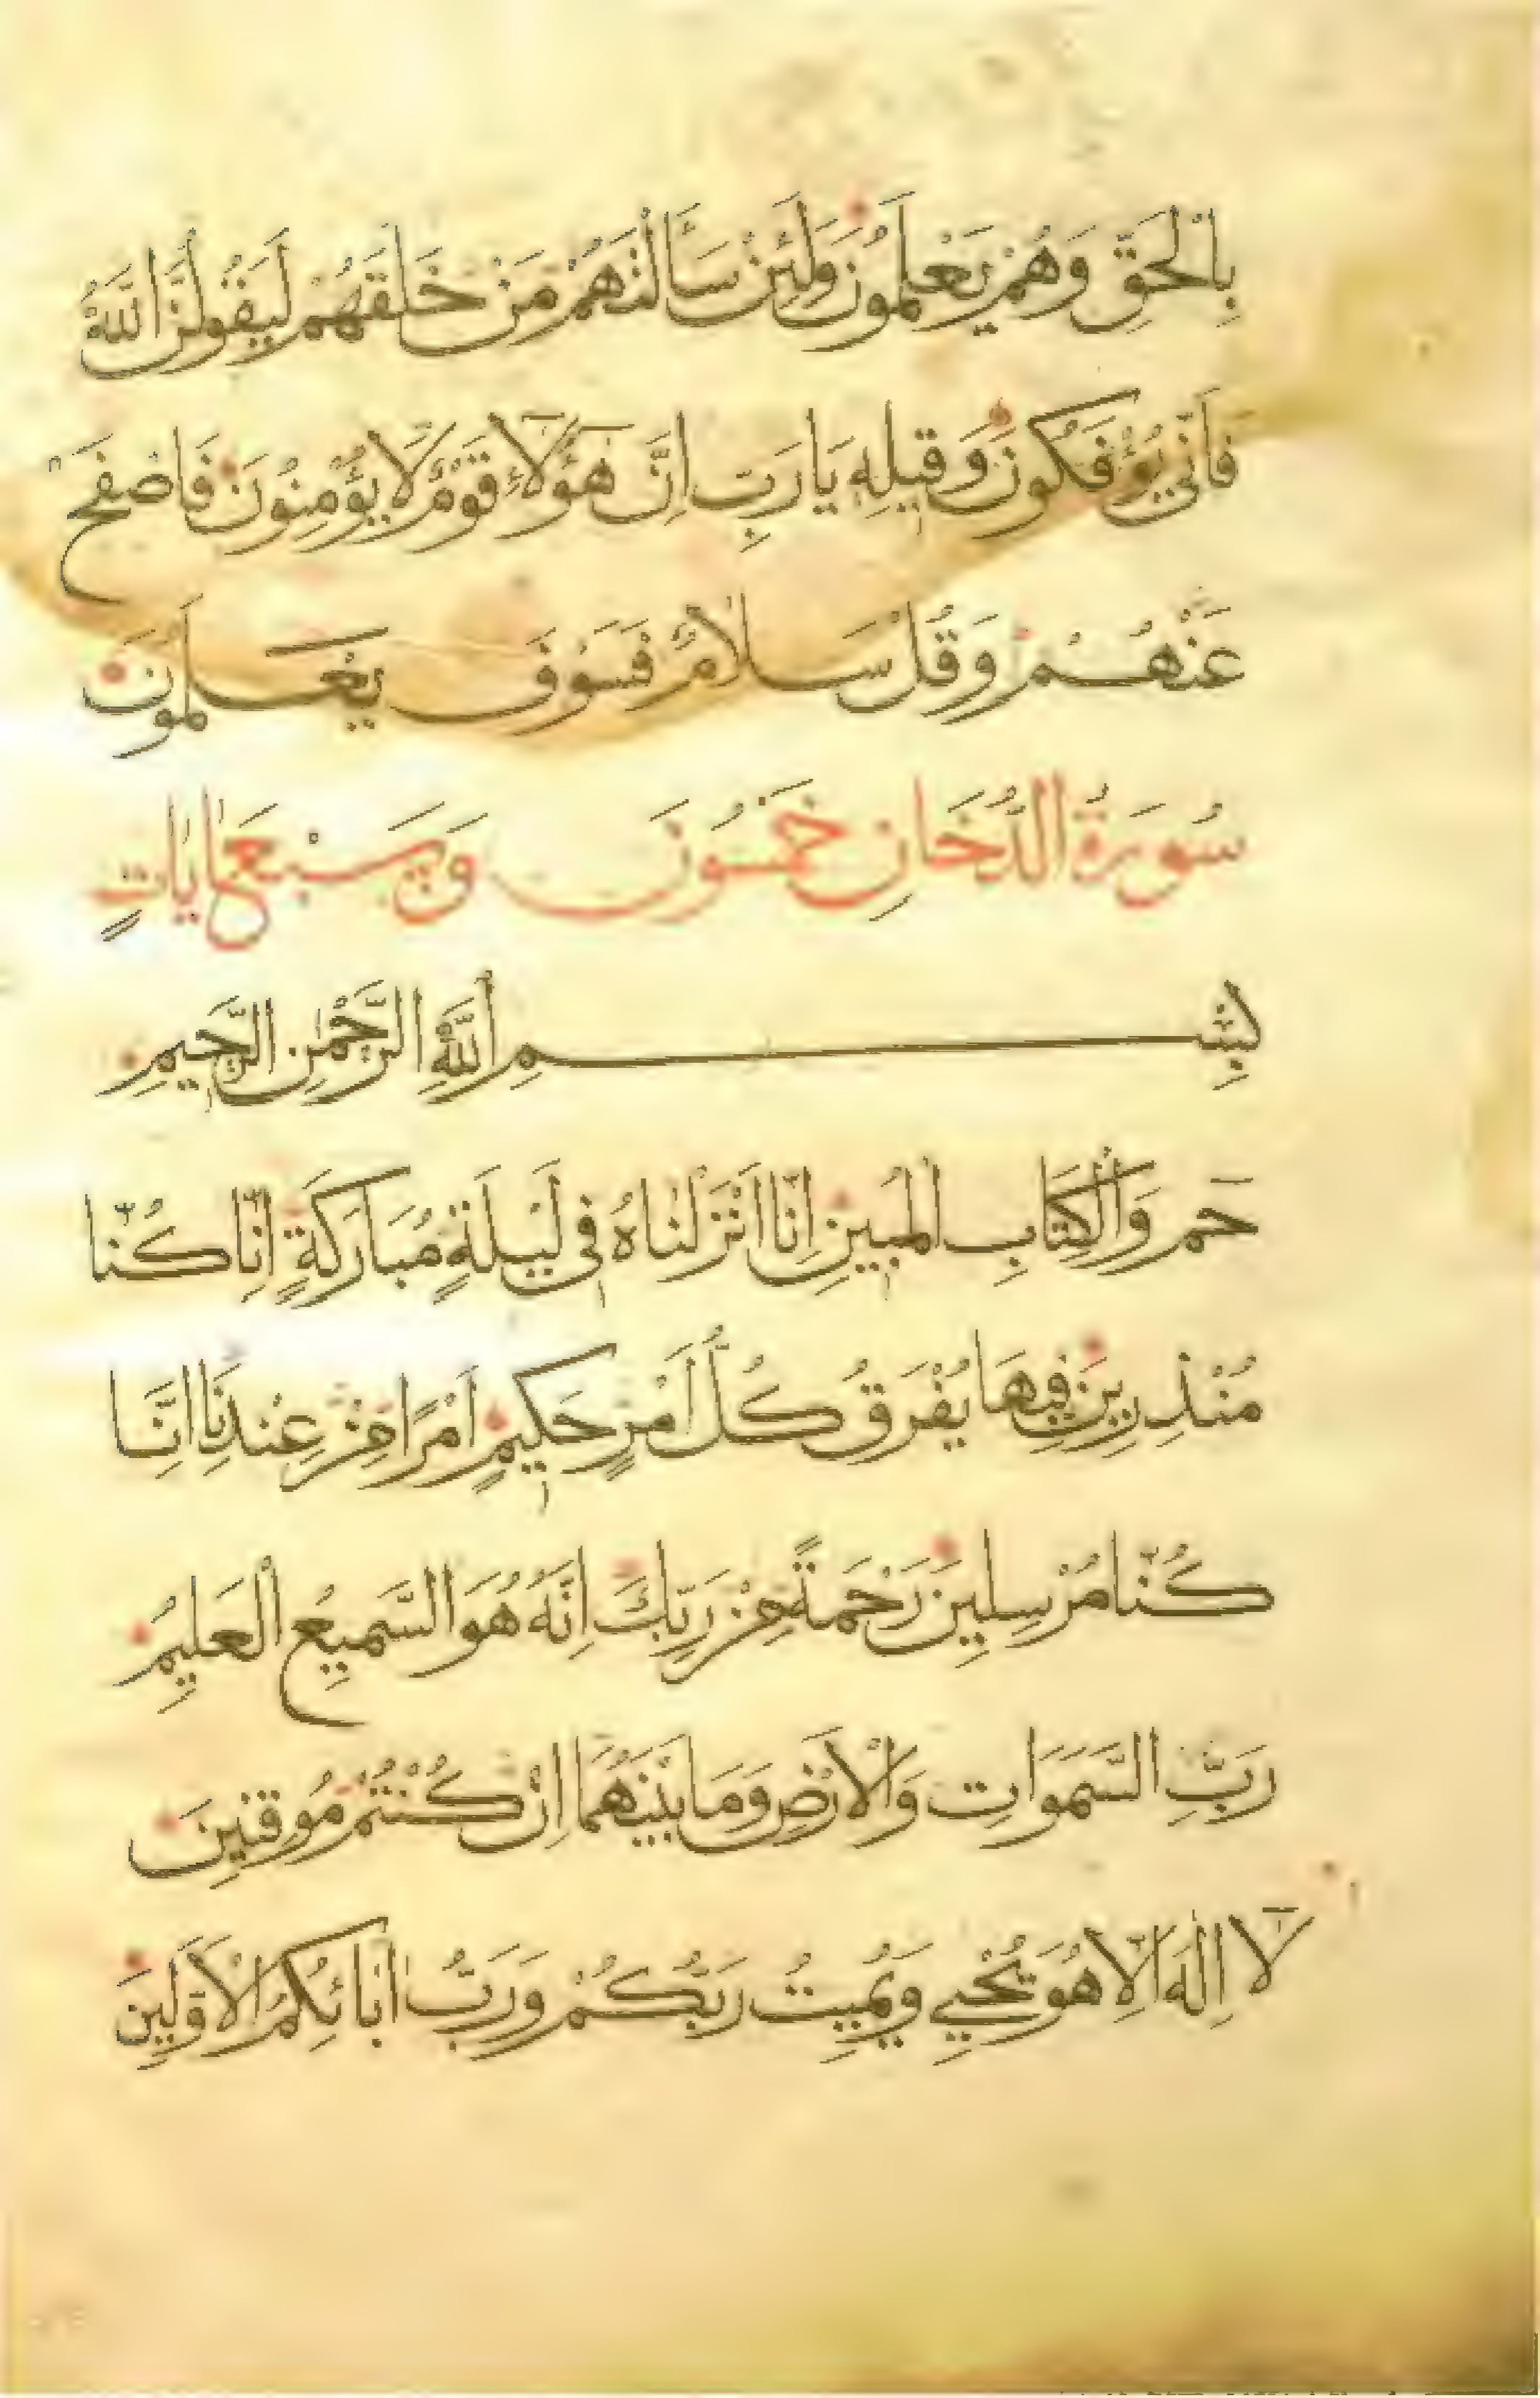 بِالْحَقِّ وَهُمْ يَعْلَمُونَ وَلَئِنْ سَأَلْتَهُمْ مَنْ خَلَقَهُمْ لَيَقُولُنَّ اللَّهُ
فَأَنَّى يُؤْفَكُونَ وَقِيلِهِ يَا رَبِّ اِنَّ هٰؤُلَاءِ قَوْمٌ لَا يُؤْمِنُونَ فَاصْفَحْ
عَنْهُمْ وَقُلْ سَلَامٌ فَسَوْفَ يَعْلَمُونَ
سُورَةُ الدُّخَانِ خَمْسُونَ وَسَبْعَ اٰيَاتٍ
بِسْمِ اللَّهِ الرَّحْمٰنِ الرَّحِيمِ
حٰم وَالْكِتَابِ الْمُبِينِ اِنَّا اَنْزَلْنَاهُ فِي لَيْلَةٍ مُبَارَكَةٍ اِنَّا كُنَّا
مُنْذِرِينَ فِيهَا يُفْرَقُ كُلُّ اَمْرٍ حَكِيمٍ اَمْرًا مِنْ عِنْدِنَا اِنَّا
كُنَّا مُرْسِلِينَ رَحْمَةً مِنْ رَبِّكَ اِنَّهُ هُوَ السَّمِيعُ الْعَلِيمُ
رَبِّ السَّمَوَاتِ وَالْاَرْضِ وَمَا بَيْنَهُمَا اِنْ كُنْتُمْ مُوقِنِينَ
لَا اِلٰهَ اِلَّا هُوَ يُحْيِي وَيُمِيتُ رَبُّكُمْ وَرَبُّ اٰبَائِكُمُ الْاَوَّلِينَ